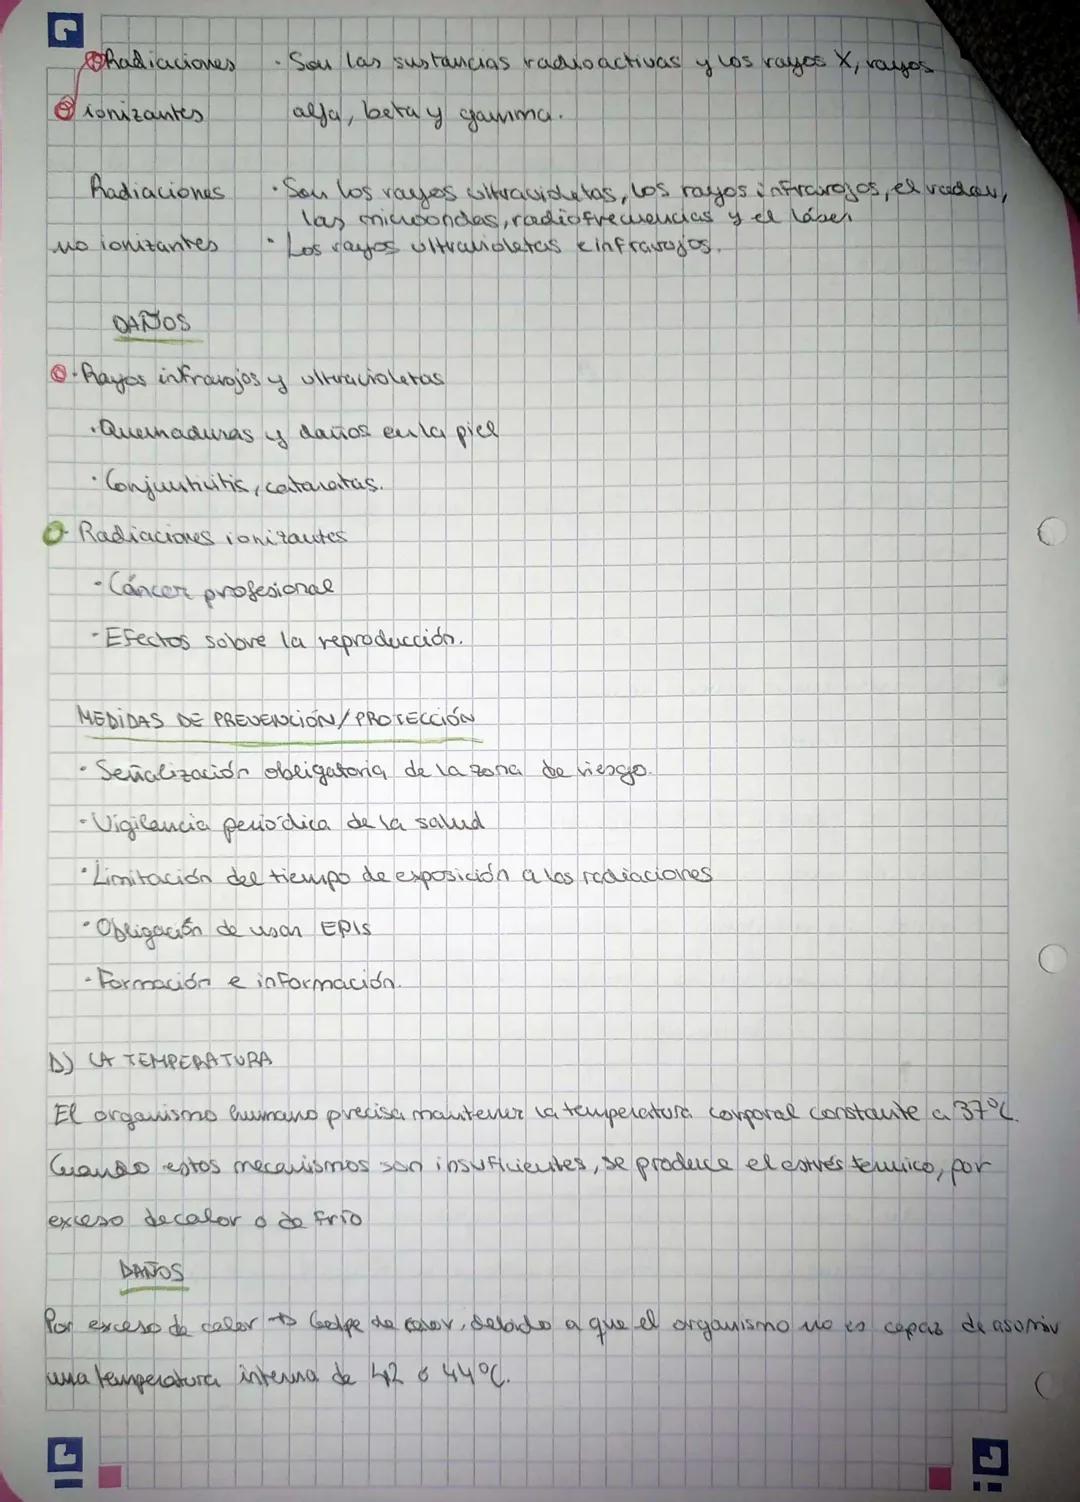 Radiaciones · Son las sustancias radioactivas y los rayos X, rayos
ionizantes alfa, beta y gamma.
Radiaciones · Son los rayos ultravioletas, los rayos infrarojos, el radar,
las microondas, radiofrecuencias y el láser
no ionizantes · Los rayos ultravioletas e infrarojos.
DAÑOS
· Rayos infrarojos y ultravioletas
· Quemaduras y daños en la piel
· Conjuntivitis, cataratas.
· Radiaciones ionizantes
- Cáncer profesional
- Efectos sobre la reproducción.
MEDIDAS DE PREVENCIÓN/PROTECCIÓN
· Señalización obligatoria de la zona de riesgo.
- Vigilancia periódica de la salud
· Limitación del tiempo de exposición a las radiaciones
· Obligación de usar EPIS
- Formación e información.
D) LA TEMPERATURA
El organismo humano precisa mantener la temperatura corporal constante a 37ºC.
Cuando estos mecanismos son insuficientes, se produce el estrés térmico, por
exceso de calor o de frío
DAÑOS
Por exceso de calor → Golpe de calor, debido a que el organismo no es capaz de asumir
una temperatura interna de 42 ó 44ºC.